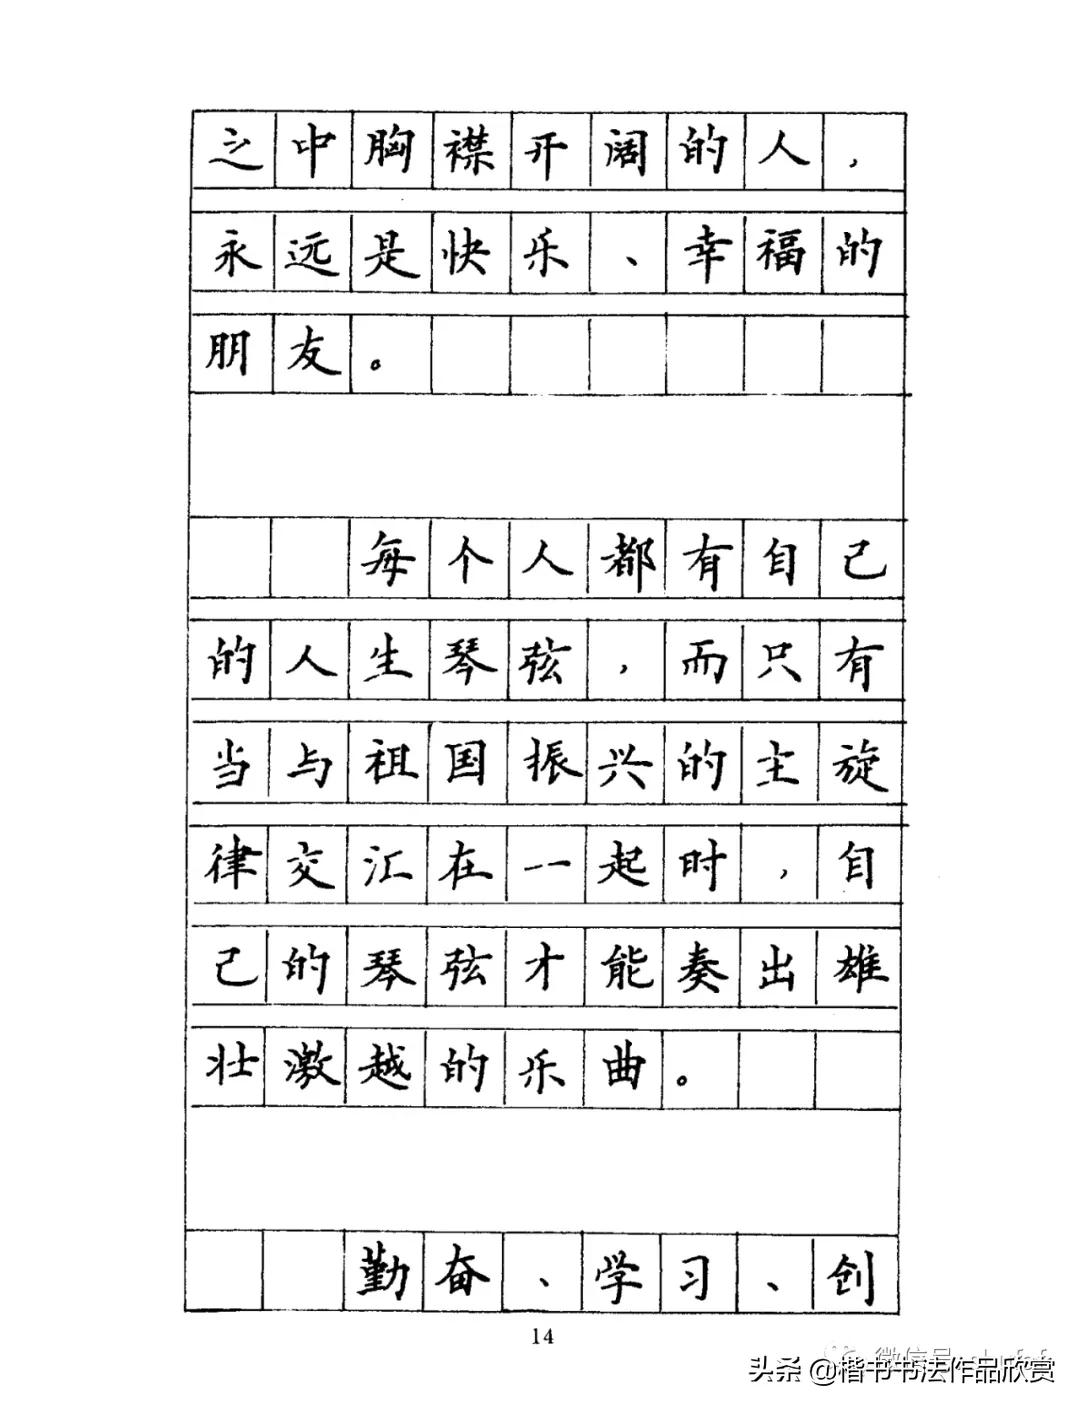 之中胸襟开阔的人，
永远是快乐、幸福的
朋友。
每个人都有自己
的人生琴弦，而只有
当与祖国振兴的主旋
律交汇在一起时，自
己的琴弦才能奏出雄
壮激越的乐曲。
勤奋、学习、创
14
头条 @楷书书法作品欣赏